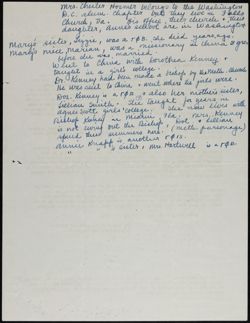 Mrs. Chester Hoover belongs to the Washington
D.C. alum. chapter but they live in Falls
Church, Va. His office, their church & their
daughter, Anne's school are in Washington.
Mary's sister, Suzie, was a ΓΦΒ. She died years ago.
Mary's niece, Marian, was a missionary in China 2 yrs.
before she was married.
Went to China with Dorothea Kenney &
taught in a girls' college.
Dr. Kenney had been made a bishop by the Meth. Church
He was sent to China - went where he girls were.
Dot. Kenney is a ΓΦΒ - also her mother's sister,
Lillian Smith. She taught for years in
Agnes Scott girls' college. She now lives with
Bishop Kenney in Florida. Mrs. Kenney
is not living but the Bishop, Dot & Lillian
spend their summers here. (Meth. parsonage)
Annie Knapp is another ΓΦΒ.
" " sister, Mrs Hartwell is a ΓΦΒ